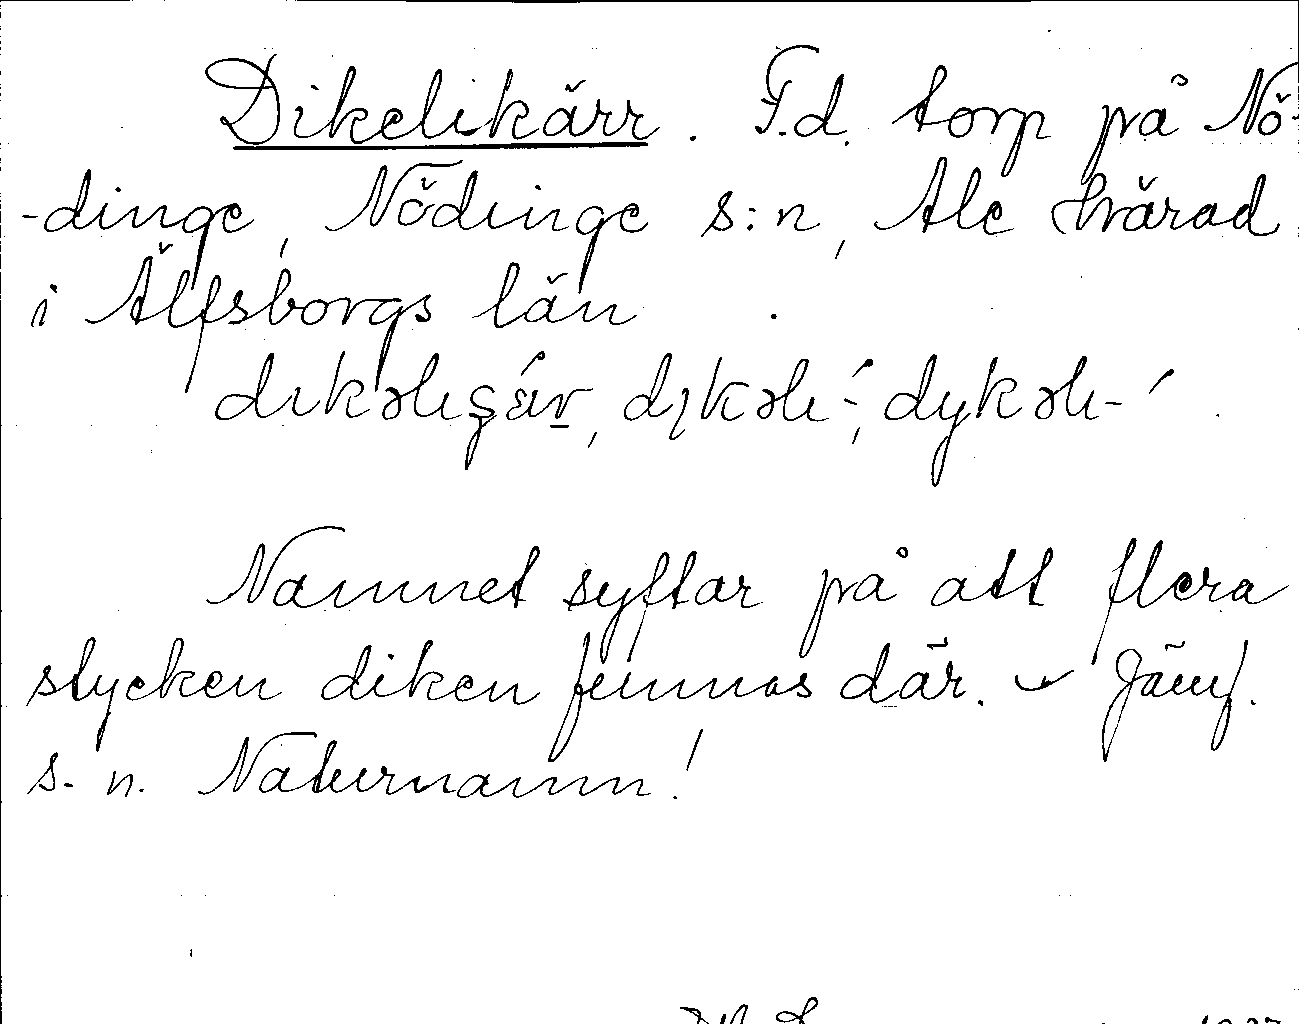 Dikelikärr. F.d. torp på Nö-
-dinge, Nödinge s:n, Ale härad
i Älfsborgs län
dikəli
Namnet syftar på att flera
stycken diken finnas där. Jämf.
s. n. Naturnamn!